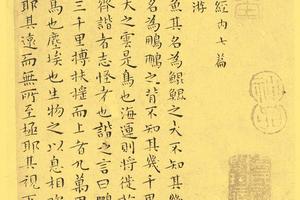 經內七篇
游
魚其名為鯤鯤之大不知其幾
名為鵬鵬之背不知其幾千里
天之雲是鳥也海運則將徙於
齊諧者志怪者也諧之言曰鵬
三千里摶扶搖而上者九萬里
馬也塵埃也生物之以息相吹
耶其遠而無所至極耶其視下